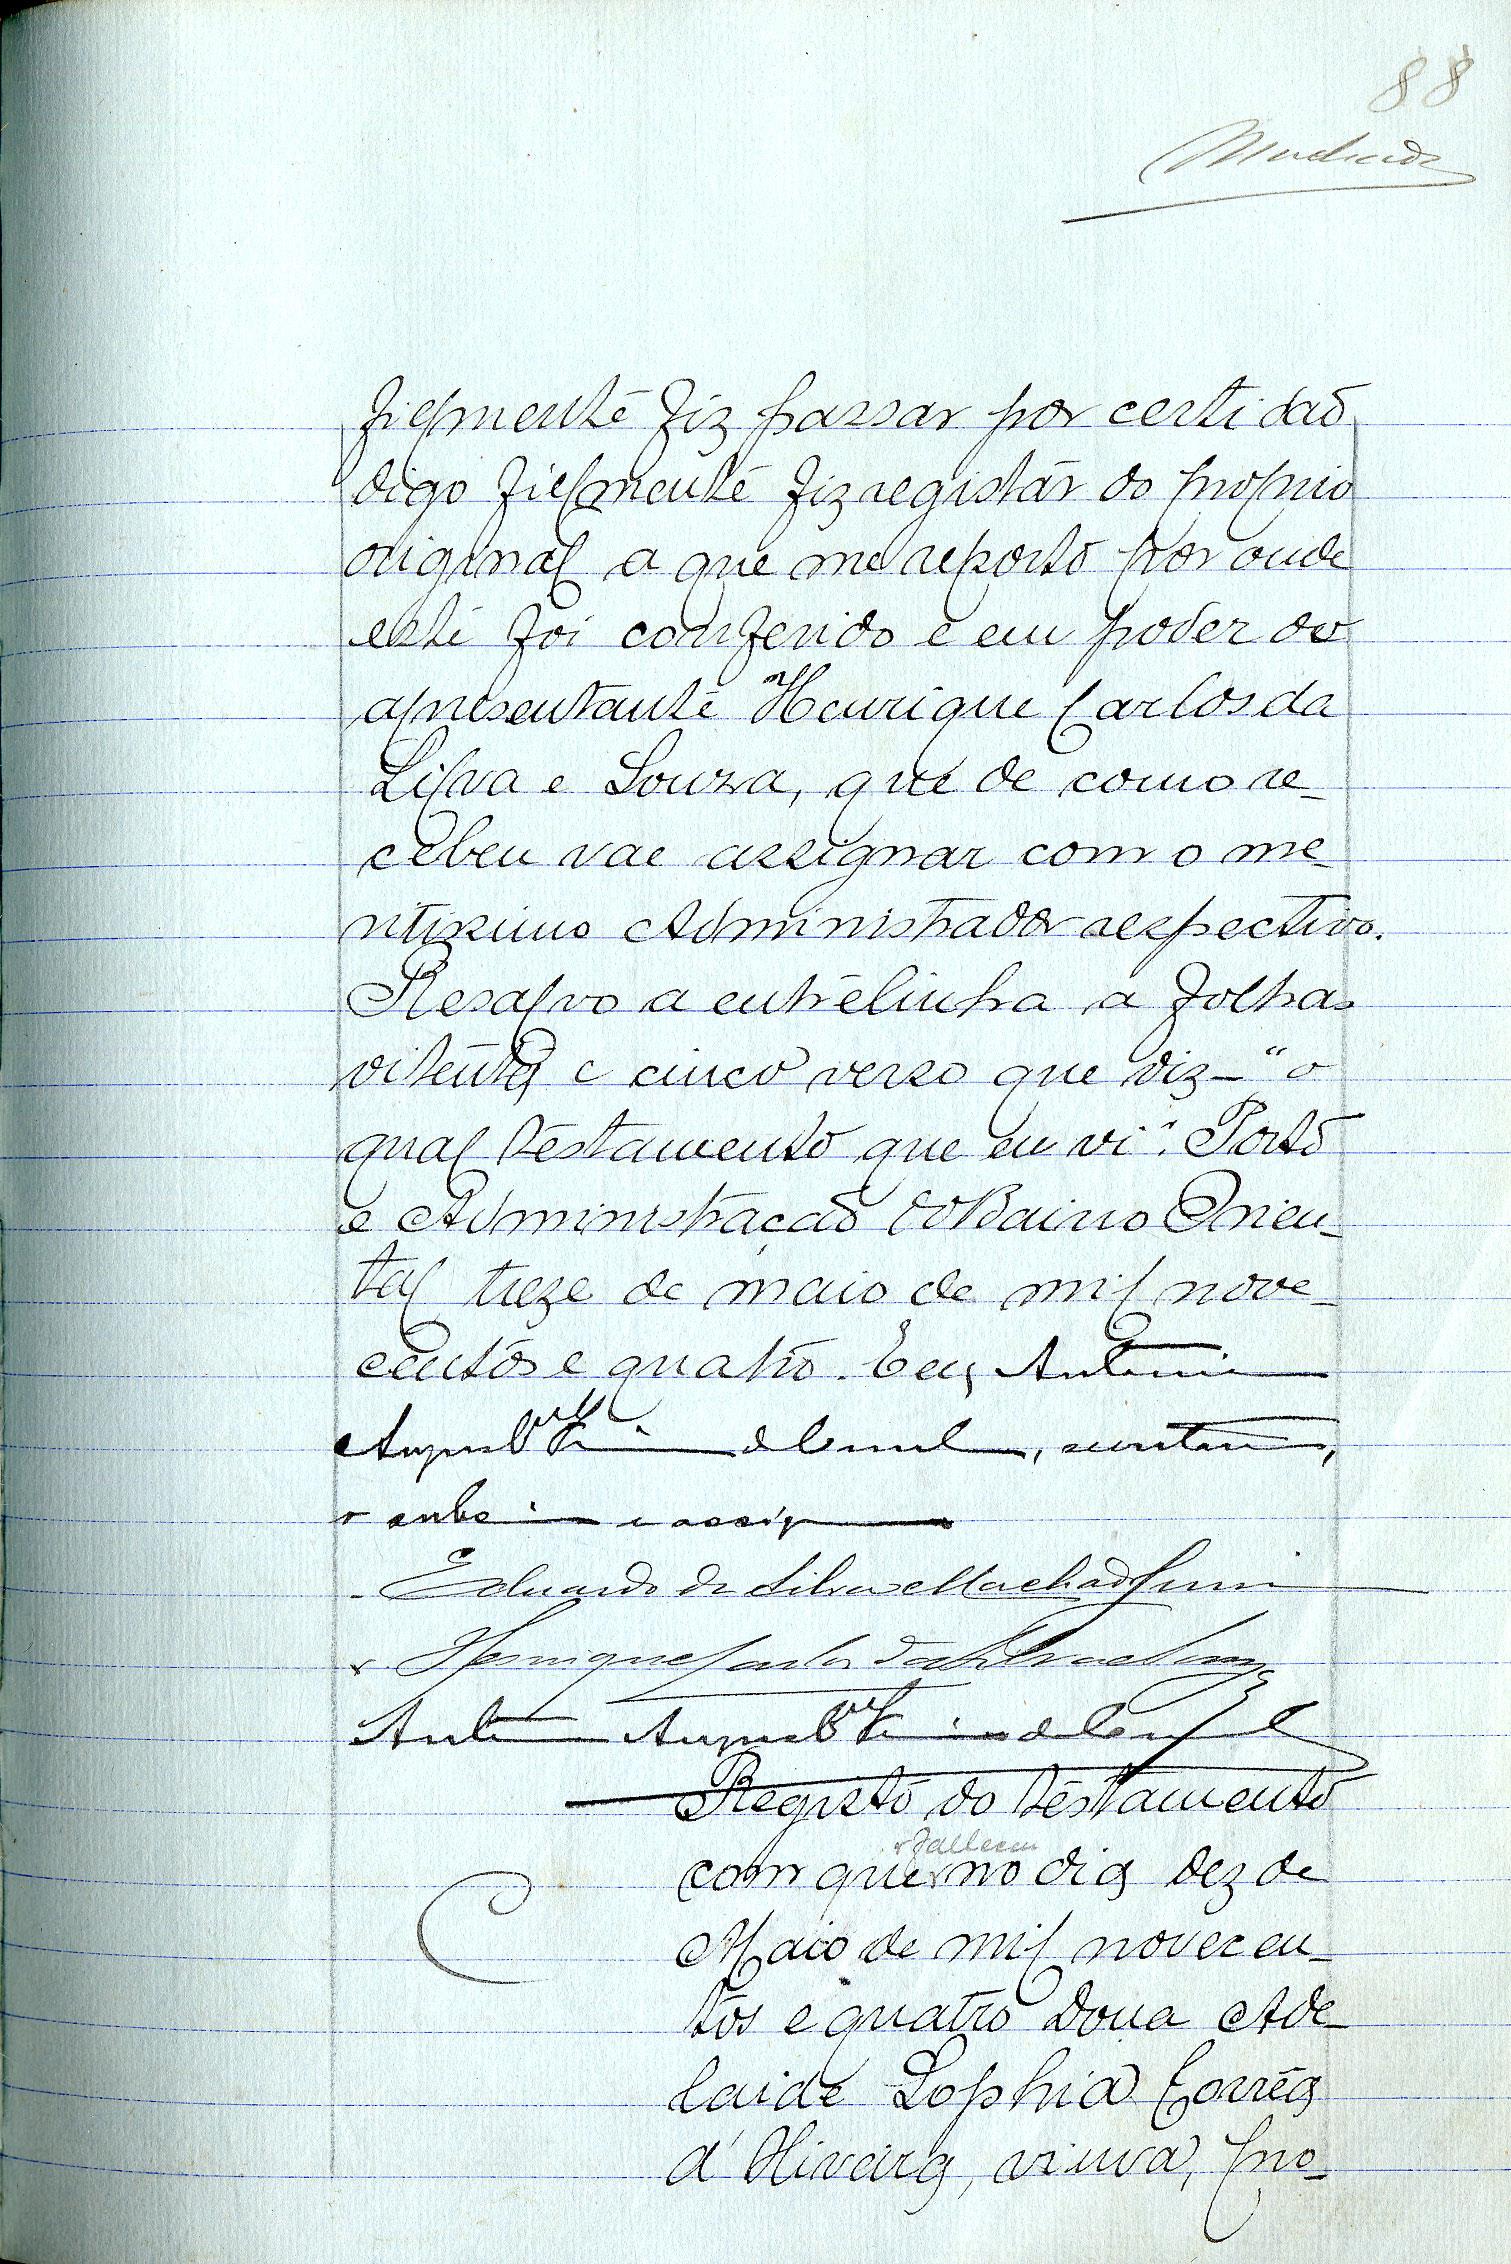 88
Machado
fielmente fiz passar por certidão,
digo fielmente fiz registár do proprio
original a que me reporto por onde
este foi conferido e em poder do
apresentante Henrique Carlos da
Silva e Souza, que de como re-
cebeu vae assignar com o me-
ritissimo Administrador respectivo.
Resalvo a entrelinha a folhas
oitenta e cinco verso que diz - "o
qual testamento que eu vi". Porto
e Administração do Bairro Orien-
tal treze de maio de mil nove-
centos e quatro. E eu, Antonio
Augusto, secretario,
o subs e assig
Eduardo da Silva Machado Junior
Henrique Carlos da Silva e Souza
Antonio Augusto
Registo do testamento
falleceu
com que no dia dez de
Maio de mil novecen-
tos e quatro Dona Ade-
laide Sophia Corrêa
d'Oliveira, viuva, pro-